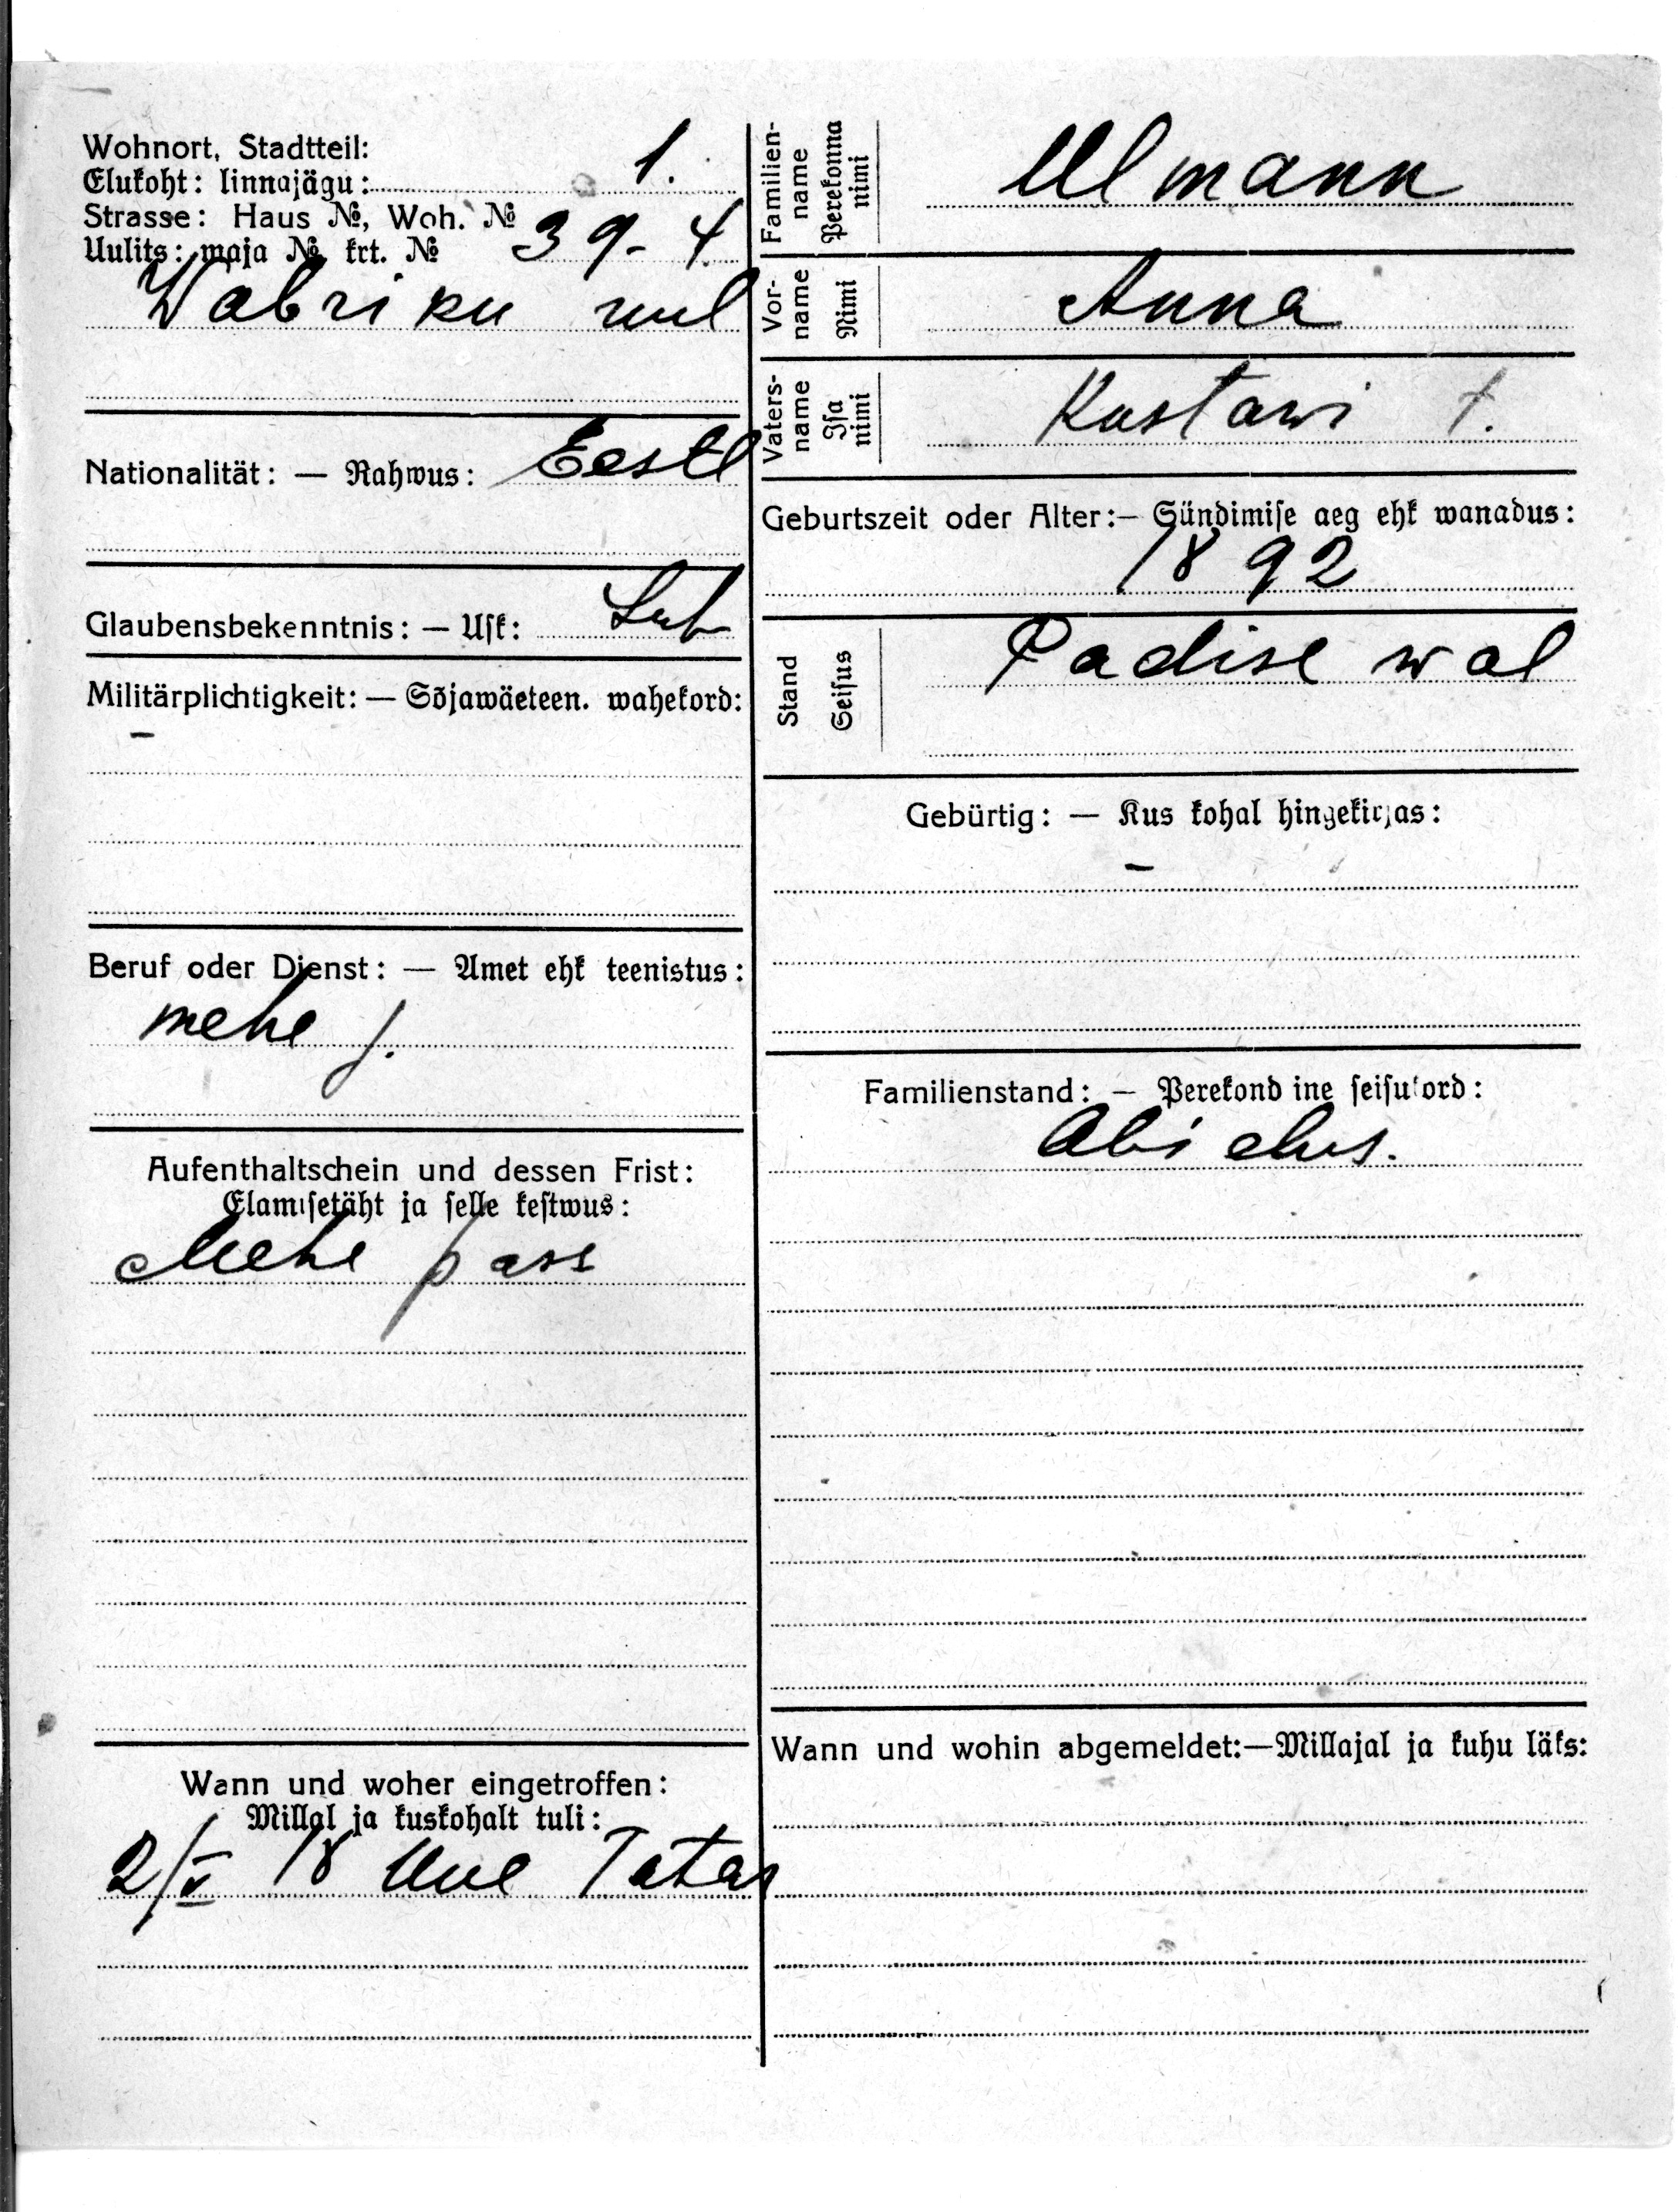 Wohnort, Stadtteil:
Elukoht: linnajägu: 1.
Strasse: Haus №, Woh. №
Uulits: maja № krt. № 39-4
Wabriku uul
Nationalität: — Rahwus: Eestl
Glaubensbekenntnis: — Usk: Lut
Militärplichtigkeit: — Sõjawäeteen. wahekord:
–
Beruf oder Dienst: — Amet ehk teenistus:
mehe j.
Aufenthaltschein und dessen Frist:
Elamisetäht ja selle kestwus:
Mehe pass
Wann und woher eingetroffen:
Millal ja kuskohalt tuli:
2/V 18 Uue Tatar
Familien-name Perekonna nimi Ulmann
Vor-name Nimi Anna
Vaters-name Isa nimi Kustawi t.
Geburtszeit oder Alter:— Sündimise aeg ehk wanadus:
1892
Stand Seisus Padise wal
Gebürtig: — Kus kohal hingekirjas:
–
Familienstand: — Perekond ine seisukord:
Abi elus.
Wann und wohin abgemeldet:—Millajal ja kuhu läks: